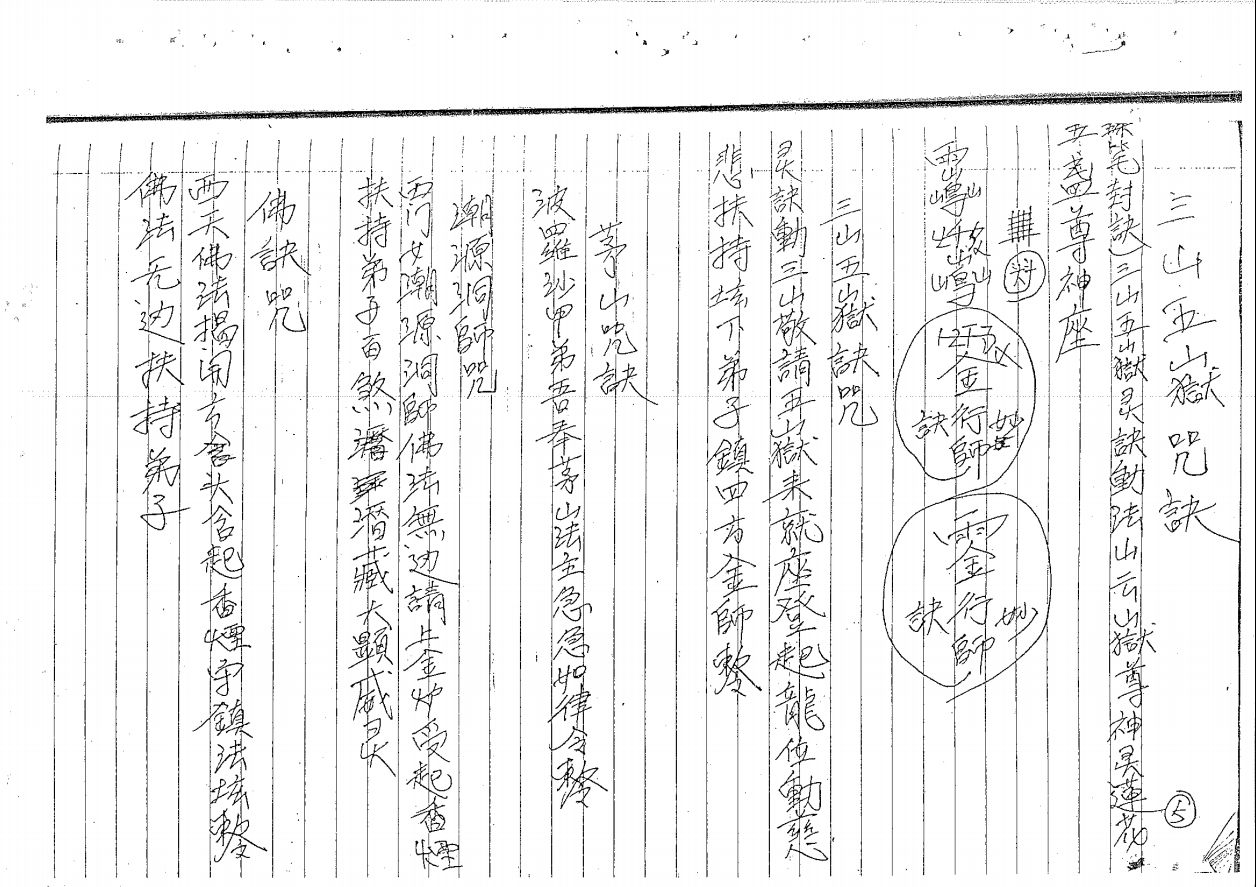 三山五山獄咒訣
封訣三山五山獄灵訣動法山云山獄尊神灵蓮花
五盞尊神座
5
料
金行師
訣 妙
金行師
訣 妙
三山五山獄訣咒
灵訣動三山敬請五山獄来就座登起龍位動慈
悲扶持坛下弟子鎮四方金師
茅山咒訣
波羅沙甲弟吾奉茅山法主急急如律令
潮源洞師咒
西门女潮源洞師佛法無边請上金炉受起香煙
扶持弟子百煞潛藏大顯威灵
佛訣咒
西天佛法揭開方含头含起香煙守鎮法坛
佛法无边扶持弟子